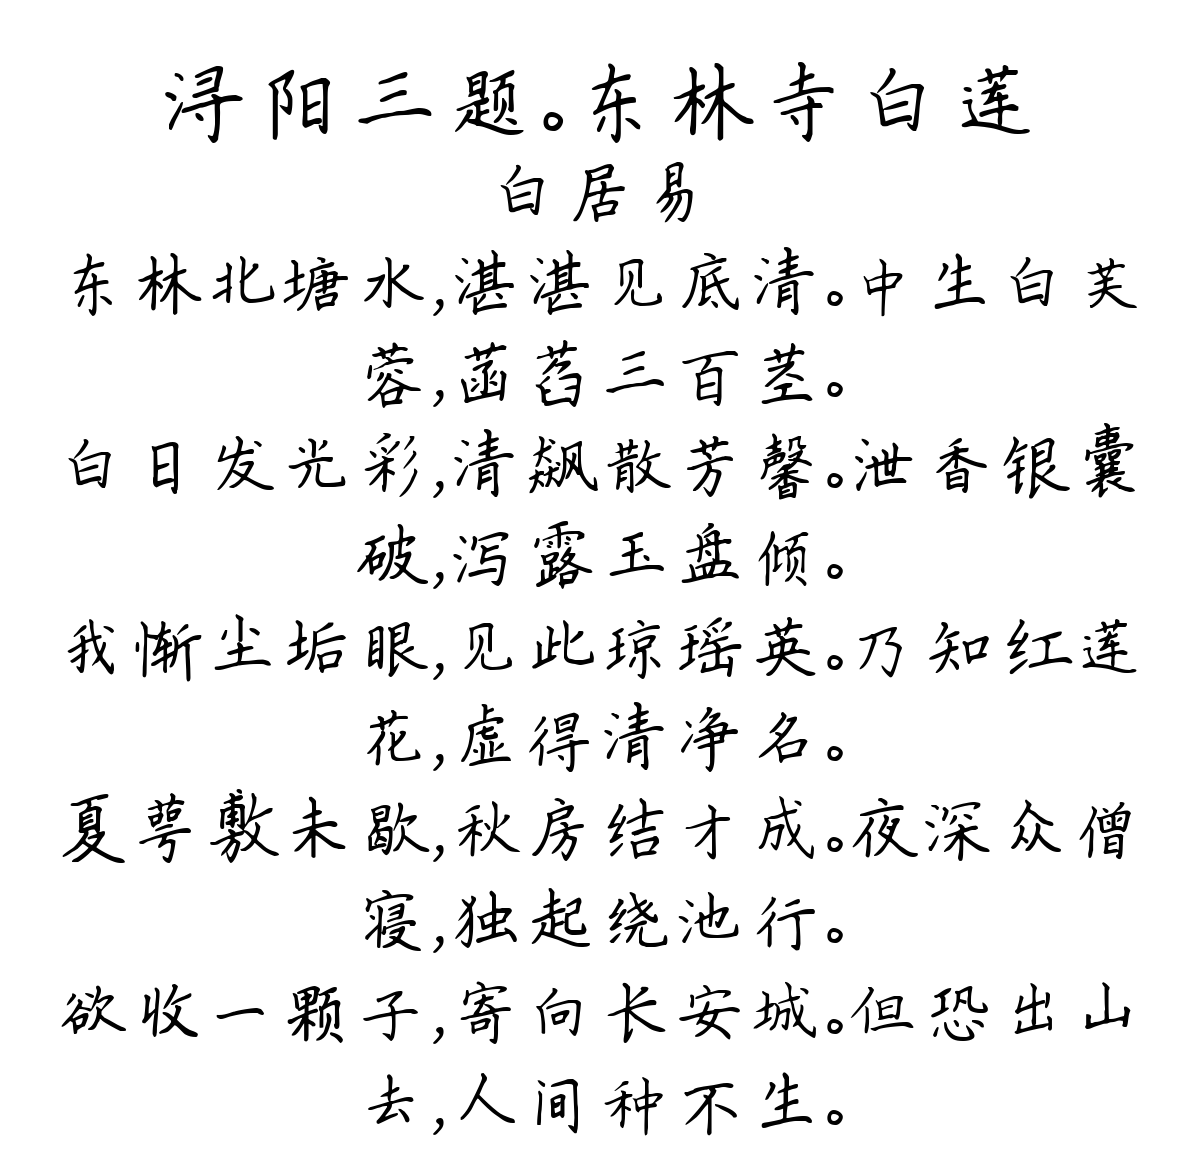 浔阳三题。东林寺白莲
白居易
东林北塘水,湛湛见底清。中生白芙
蓉,菡萏三百茎。
白日发光彩,清飙散芳馨。泄香银囊
破,泻露玉盘倾。
我惭尘垢眼,见此琼瑶英。乃知红莲
花,虚得清净名。
夏萼敷未歇,秋房结才成。夜深众僧
寝,独起绕池行。
欲收一颗子,寄向长安城。但恐出山
去,人间种不生。